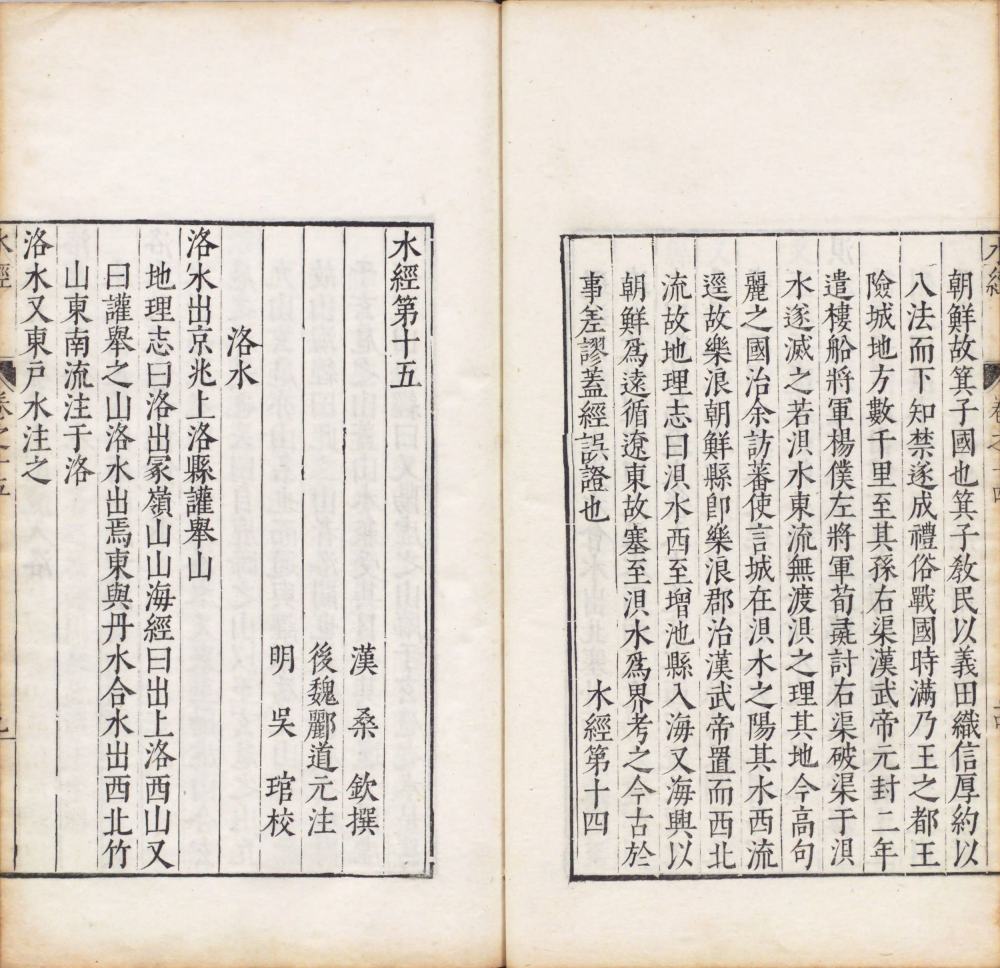 水經
卷之十四
朝鮮故箕子國也箕子敎民以義田織信厚約以
八法而下知禁遂成禮俗戰國時滿乃王之都王
險城地方數千里至其孫右渠漢武帝元封二年
遣樓船將軍楊僕左將軍荀彘討右渠破渠于浿
水遂滅之若浿水東流無渡浿之理其地今高句
麗之國治余訪蕃使言城在浿水之陽其水西流
逕故樂浪朝鮮縣卽樂浪郡治漢武帝置而西北
流故地理志曰浿水西至增池縣入海又海興以
朝鮮爲遠循遼東故塞至浿水爲界考之今古於
事差謬蓋經誤證也
水經第十四
水經第十五
漢 桑 欽撰
後魏酈道元注
明 吳 琯校
洛水
洛水出京兆上洛縣讙舉山
地理志曰洛出冢嶺山山海經曰出上洛西山又
曰讙舉之山洛水出焉東與丹水合水出西北竹
山東南流注于洛
洛水又東戸水注之
水經
卷之十五